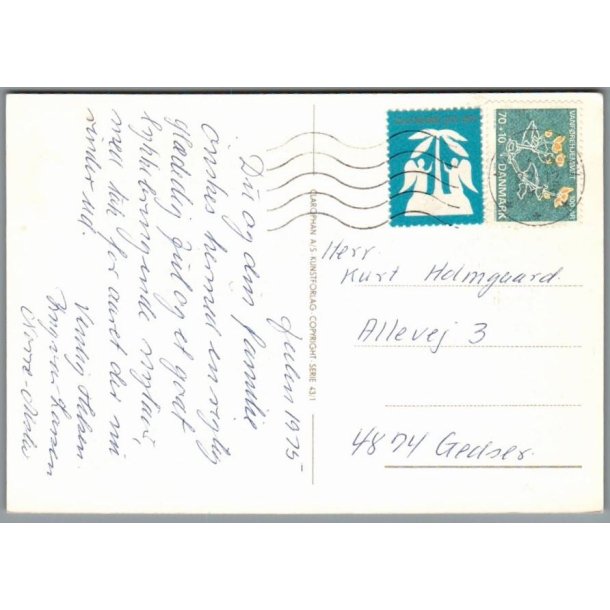 Julen 1975
Du og din familie
ønskes hermed en rigtig
glædelig Jul og et godt
lykkebringende nytår,
med tak for året der nu
rinder ud.
Venlig Hilsen
Hansen
CLAROPHAN A/S KUNSTFORLAG COPYRIGHT SERIE 431
VANFØREHJÆLPEN
70+10 DANMARK
Herr
Kurt Holmgaard.
Allevej 3
4874 Gedser.